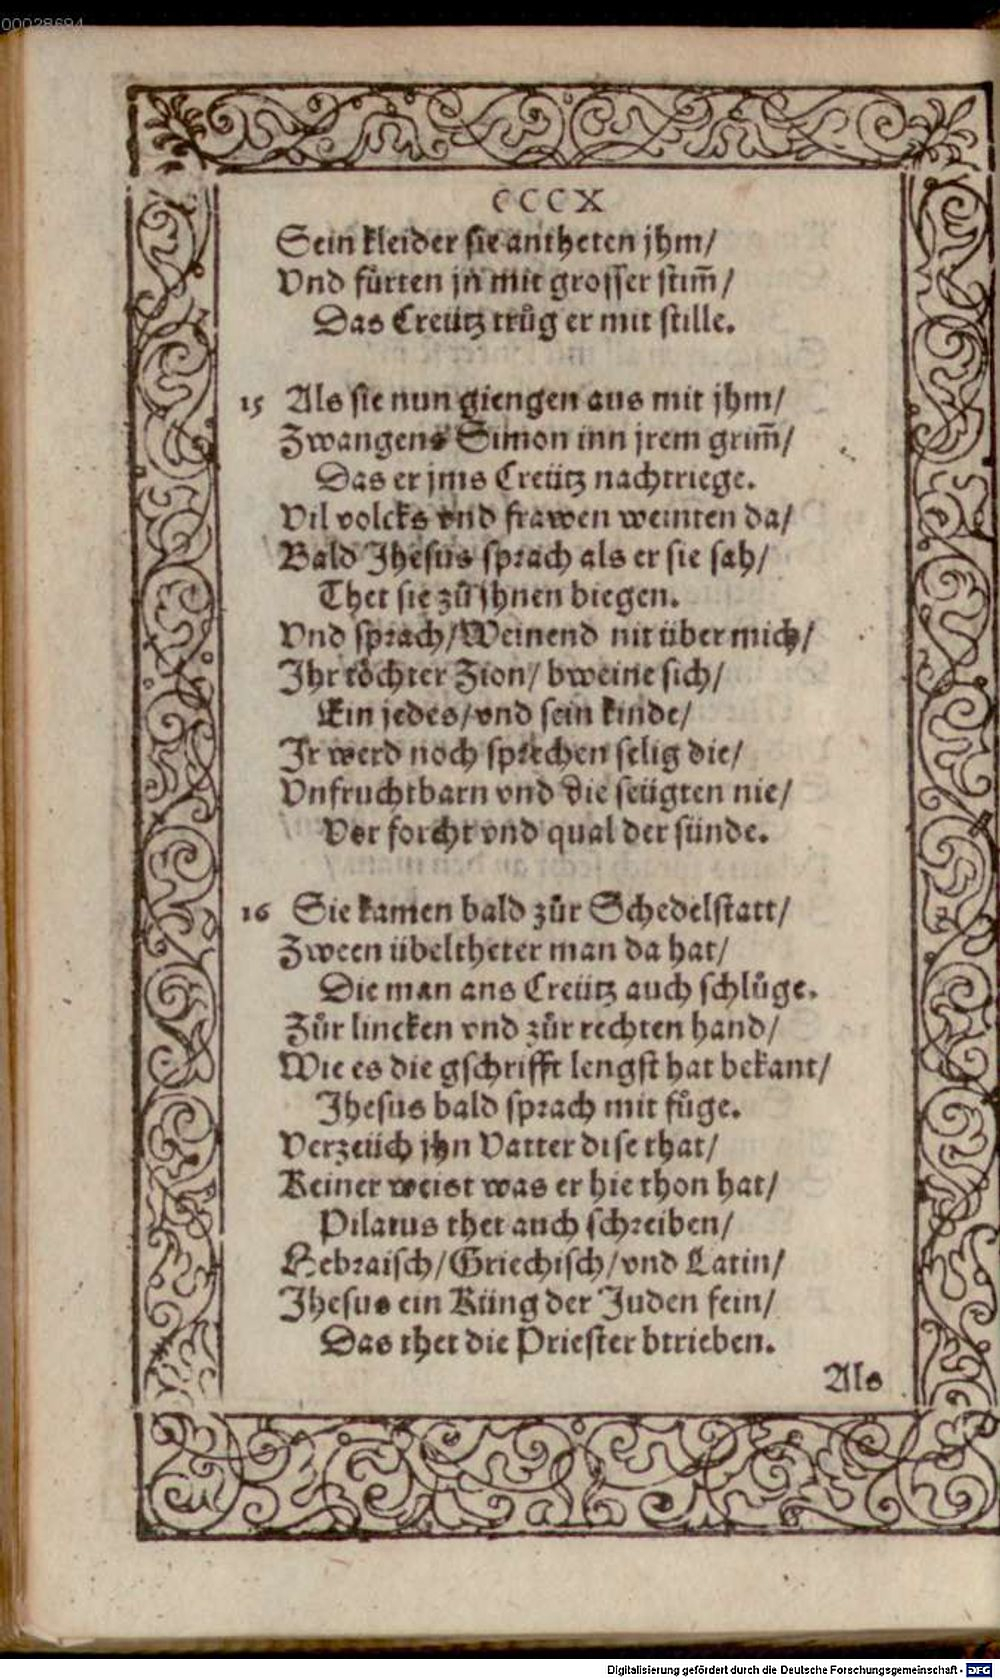 00028694
CCCX
Sein kleider sie antheten jhm/
Vnd fürten jn mit grosser stim̄/
Das Creütz trůg er mit stille.
15 Als sie nun giengen aus mit jhm/
Zwangens Simon inn jrem grim̄/
Das er jms Creütz nachtriege.
Vil volcks vnd frawen weinten da/
Bald Jhesus sprach als er sie sah/
Thet sie zů jhnen biegen.
Vnd sprach/Weinend nit über mich/
Ihr töchter Zion/ bweine sich/
Ein jedes/vnd sein kinde/
Ir werd noch sprechen selig die/
Vnfruchtbarn vnd die seügten nie/
Vor forcht vnd qual der sünde.
16 Sie kamen bald zůr Schedelstatt/
Zween übeltheter man da hat/
Die man ans Creütz auch schlůge.
Zůr lincken vnd zůr rechten hand/
Wie es die gschrifft lengst hat bekant/
Jhesus bald sprach mit fůge.
Verzeüch jhn Vatter dise that/
Keiner weist was er hie thon hat/
Pilatus thet auch schreiben/
Hebraisch/Griechisch/vnd Latin/
Jhesus ein Küng der Juden fein/
Das thet die Priester btrieben.
Als
Digitalisierung gefördert durch die Deutsche Forschungsgemeinschaft - DFG